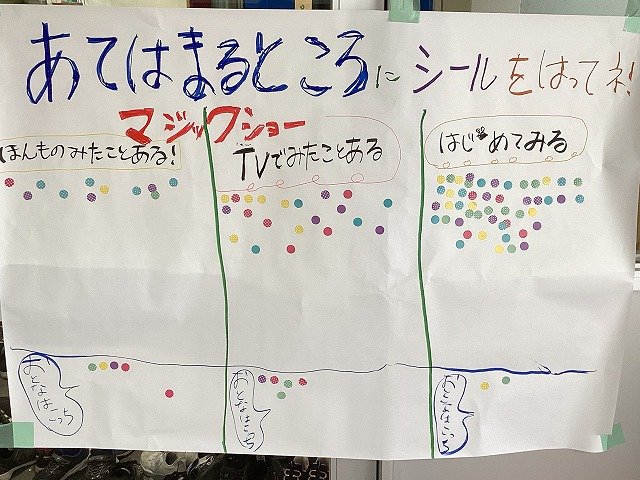 あてはまるところにシールをはってネ!
マジックショー
ほんものみたことある!
TVでみたことある
はじめてみる
おとなはこっち
おとなはこっち
おとなはこっち